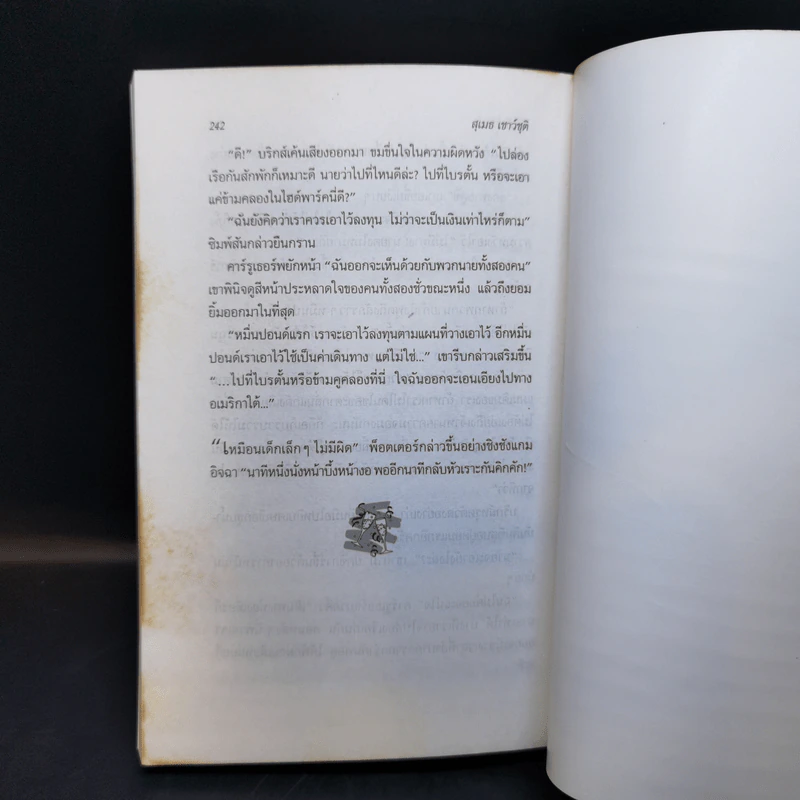 242
สุเมธ เชาว์ชุติ
“ดี!” บริกส์เค้นเสียงออกมา ขมขื่นใจในความผิดหวัง “ไปล่อง
เรือกันสักพักก็เหมาะดี นายว่าไปที่ไหนดีล่ะ? ไปที่ไบรตั้น หรือจะเอา
แค่ข้ามคลองในไฮด์พาร์คนี่ดี?”
“ฉันยังคิดว่าเราควรเอาไว้ลงทุน ไม่ว่าจะเป็นเงินเท่าไหร่ก็ตาม”
ซิมพ์สันกล่าวยืนกราน
คาร์รูเธอร์พยักหน้า “ฉันออกจะเห็นด้วยกับพวกนายทั้งสองคน”
เขาพินิจดูสีหน้าประหลาดใจของคนทั้งสองชั่วขณะหนึ่ง แล้วถึงยอม
ยิ้มออกมาในที่สุด
“หมื่นปอนด์แรก เราจะเอาไว้ลงทุนตามแผนที่วางเอาไว้ อีกหมื่น
ปอนด์เราเอาไว้ใช้เป็นค่าเดินทาง แต่ไม่ใช่...” เขารีบกล่าวเสริมขึ้น
“...ไปที่ไบรตั้นหรือข้ามคูคลองที่นี่ ใจฉันออกจะเอนเอียงไปทาง
อเมริกาใต้...”
“เหมือนเด็กเล็กๆ ไม่มีผิด” พ็อตเตอร์กล่าวขึ้นอย่างชิงชังแกม
อิจฉา “นาทีหนึ่งนั่งหน้าบึ้งหน้างอ พออีกนาทีกลับหัวเราะกันคิกคัก!”